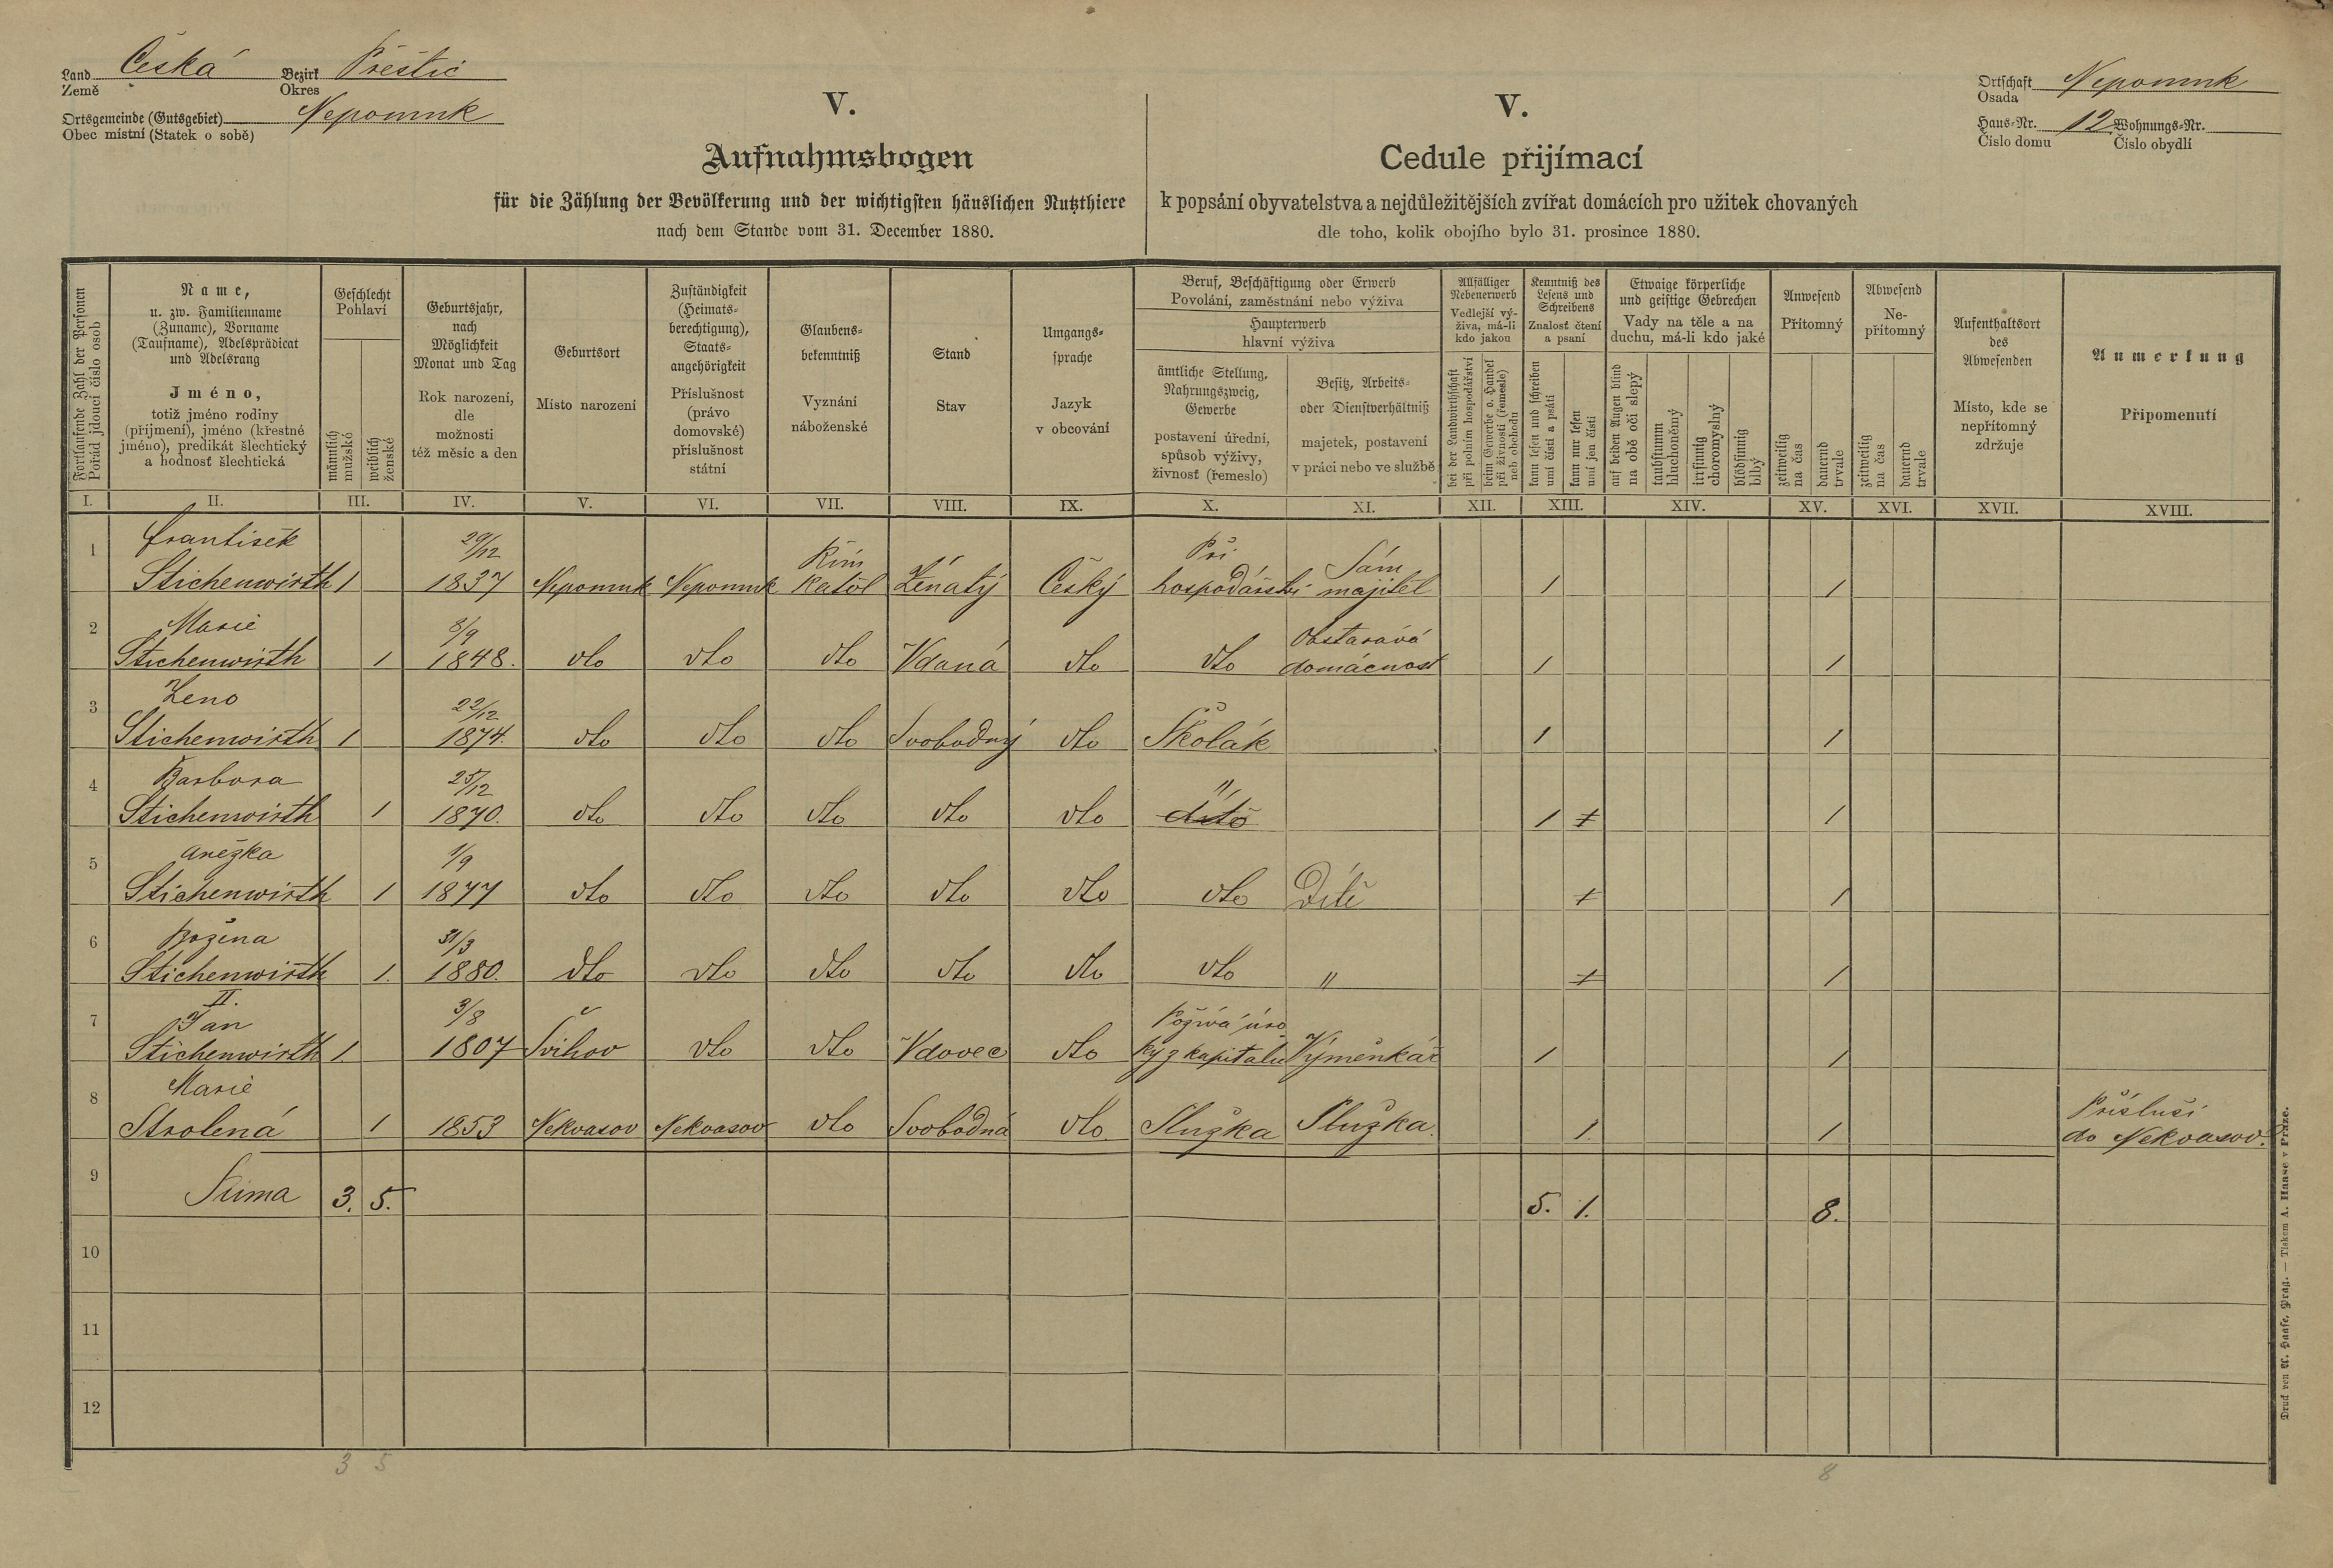 Land Česká Bezirk Přeštic
Země Okres
Ortsgemeinde (Gutsgebiet) Nepomuk
Obec místní (Statek o sobě)
Ortschaft Nepomuk
Osada
Haus-Nr. 12 Wohnungs-Nr.
Číslo domu Číslo obydlí
V.
Aufnahmsbogen
für die Zählung der Bevölkerung und der wichtigsten häuslichen Nutzthiere
nach dem Stande vom 31. December 1880.
V.
Cedule přijímací
k popsání obyvatelstva a nejdůležitějších zvířat domácích pro užitek chovaných
dle toho, kolik obojího bylo 31. prosince 1880.
Fortlaufende Zahl der Personen
Pořád jdoucí číslo osob
Name,
u. zw. Familienname
(Zuname), Vorname
(Taufname), Adelsprädicat
und Adelsrang
Jméno,
totiž jméno rodiny
(příjmení), jméno (křestné
jméno), predikát šlechtický
a hodnosť šlechtická
Geschlecht
Pohlaví
männlich
mužské
weiblich
ženské
Geburtsjahr,
nach
Möglichkeit
Monat und Tag
Rok narození,
dle
možnosti
též měsíc a den
Geburtsort
Místo narození
Zuständigkeit
(Heimats-
berechtigung),
Staats-
angehörigkeit
Příslušnost
(právo
domovské)
příslušnost
státní
Glaubens-
bekenntniß
Vyznání
náboženské
Stand
Stav
Umgangs-
sprache
Jazyk
v obcování
Beruf, Beschäftigung oder Erwerb
Povolání, zaměstnání nebo výživa
Haupterwerb
hlavní výživa
ämtliche Stellung,
Nahrungszweig,
Gewerbe
postavení úřední,
spůsob výživy,
živnosť (řemeslo)
Besitz, Arbeits-
oder Dienstverhältniß
majetek, postavení
v práci nebo ve službě
Allfälliger
Nebenerwerb
Vedlejší vý-
živa, má-li
kdo jakou
bei der Landwirthschaft
při polním hospodářství
beim Gewerbe o. Handel
při živnosti (řemesle)
neb obchodu
Kenntniß des
Lesens und
Schreibens
Znalosť čtení
a psaní
kann lesen und schreiben
umí čísti a psáti
kann nur lesen
umí jen čísti
Etwaige körperliche
und geistige Gebrechen
Vady na těle a na
duchu, má-li kdo jaké
auf beiden Augen blind
na obě oči slepý
taubstumm
hluchoněmý
irrsinnig
choromyslný
blödsinnig
blbý
Anwesend
Přítomný
zeitweilig
na čas
dauernd
trvale
Abwesend
Ne-
přítomný
zeitweilig
na čas
dauernd
trvale
Aufenthaltsort
des
Abwesenden
Místo, kde se
nepřítomný
zdržuje
Anmerkung
Připomenutí
I. II. III. IV. V. VI. VII. VIII. IX. X. XI. XII. XIII. XIV. XV. XVI. XVII. XVIII.
1 František 29/12 Řím Při Sám
Stichenwirth 1 1837 Nepomuk Nepomuk Katol Ženatý Český hospodářství majitel 1 1
2 Marie 8/9 Obstarává
Stichenwirth 1 1848. dto dto dto Vdaná dto dto domácnost 1 1
3 Zeno 22/12
Stichenwirth 1 1874. dto dto dto Svobodný dto Školák 1 1
4 Barbora 25/12 "
Stichenwirth 1 1870. dto dto dto dto dto dítě 1 1 1
5 Anežka 1/9
Stichenwirth 1 1877 dto dto dto dto dto dto Dítě 1 1
6 Božena 31/3
Stichenwirth 1. 1880. dto dto dto dto dto dto " 1 1
II.
7 Jan 3/8 Požívá úro
Stichenwirth 1. 1807 Švihov dto dto Vdovec dto ky z kapitálu Výměnkář 1 1
8 Marie Přísluší
Strolená 1 1853 Nekvasov Nekvasov dto Svobodná dto Služka Služka. 1. 1 do Nekvasov.
9 Suma 3. 5. 5. 1. 8.
10
11
12
3 5 8
Druck von A. Haase, Prag. — Tiskem A. Haase v Praze.